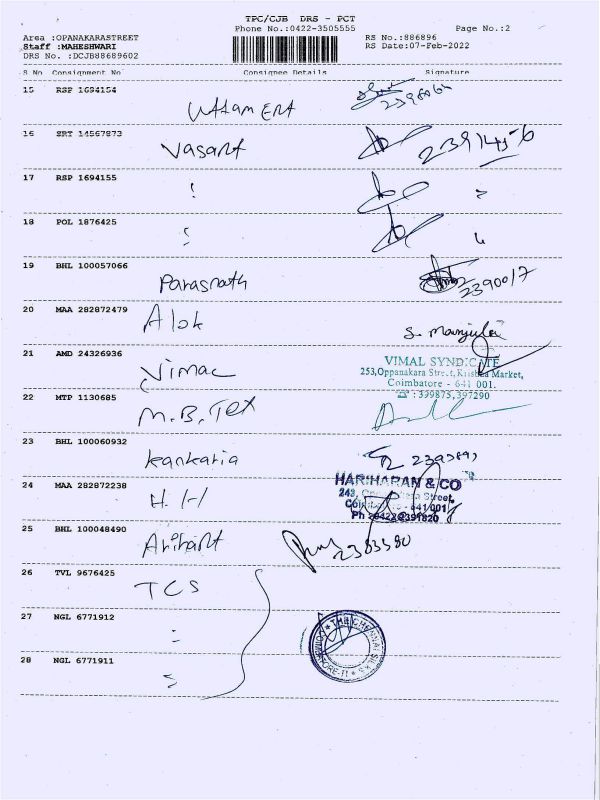 TPC/CJB DRS - PCT
Phone No.:0422-3505555
Page No.:2
Area :OPANAKARASTREET
RS No.:886896
Staff :MAHESHWARI
RS Date:07-Feb-2022
DRS No. :DCJB88689602
S No Consignment No Consignee Details Signature
15 RSP 1694154
Uttam Ent
16 SRT 14567873
Vasant
2391456
17 RSP 1694155
18 POL 1876425
19 BHL 100057066
Parasnath
2390017
20 MAA 282872479
Alok
S. Manjula
21 AMD 24326936
Vimac
VIMAL SYNDICATE
253,Oppanakara Street,Krishna Market,
Coimbatore - 641 001.
☎ : 399875,397290
22 MTP 1130685
M.B. Tex
23 BHL 100060932
kankaria
24 MAA 282872238
H.H
HARIHARAN & CO
25 BHL 100048490
Arihant
2383590
26 TVL 9676425
TCS
27 NGL 6771912
THE CHENNAI SILKS
COIMBATORE-1
28 NGL 6771911